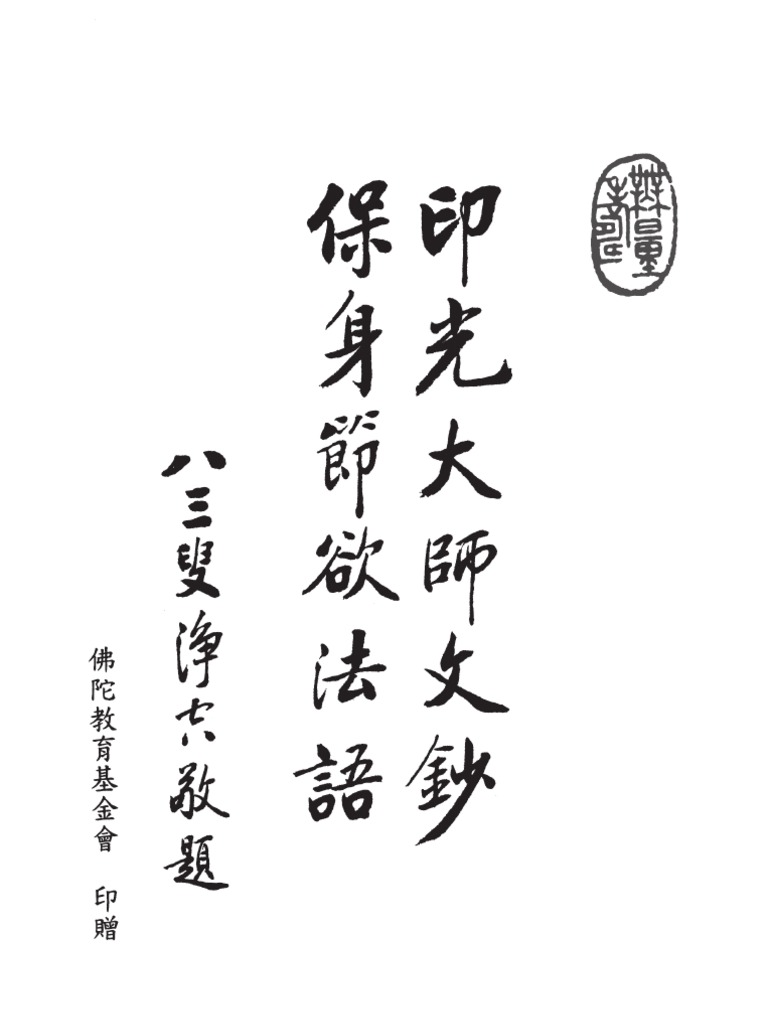 印光大師文鈔
保身節欲法語
八三叟淨空敬題
佛陀教育基金會 印贈